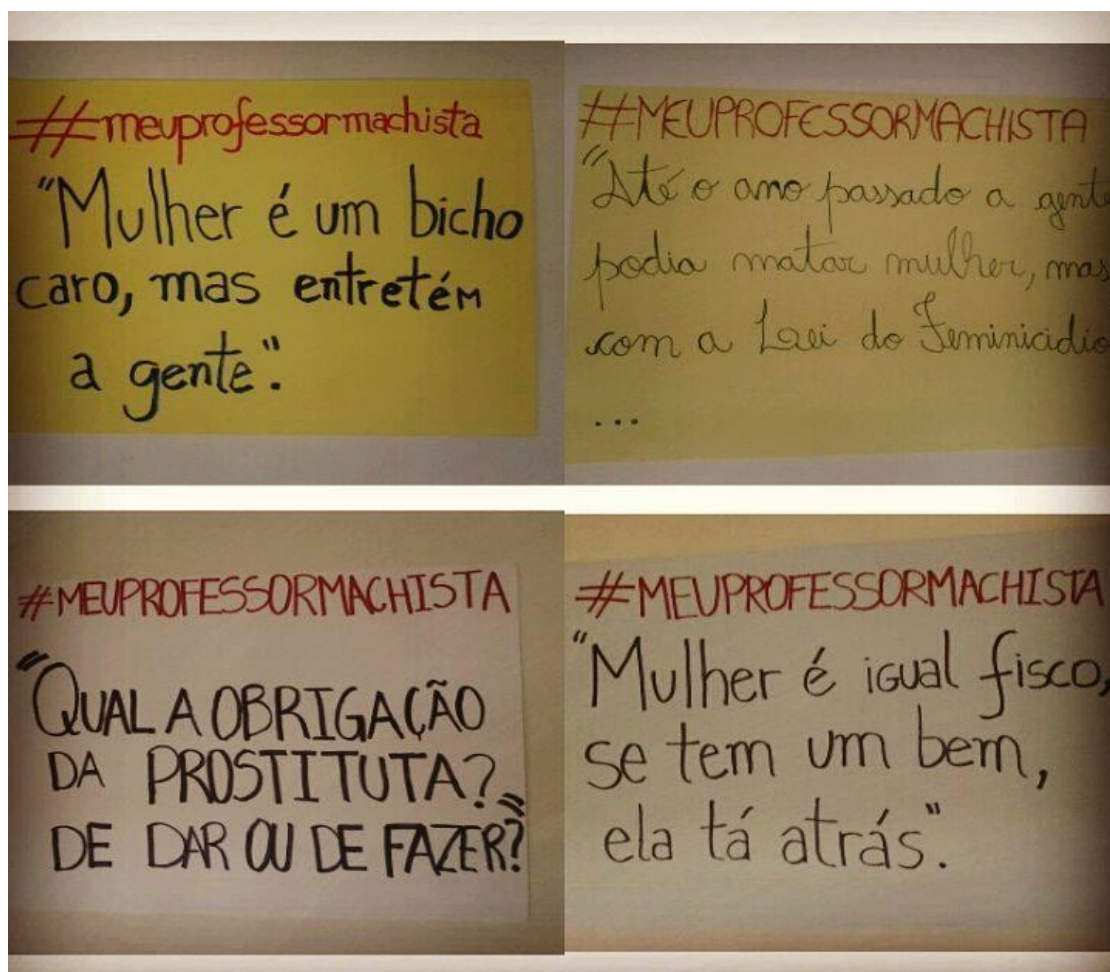 #meuprofessormachista
"Mulher é um bicho
caro, mas entretém
a gente".
#MEUPROFESSORMACHISTA
"Até o ano passado a gente
podia matar mulher, mas
com a Lei do Feminicídio
...
#MEUPROFESSORMACHISTA
"QUAL A OBRIGAÇÃO
DA PROSTITUTA?
DE DAR OU DE FAZER?"
#MEUPROFESSORMACHISTA
"Mulher é igual fisco,
se tem um bem,
ela tá atrás".